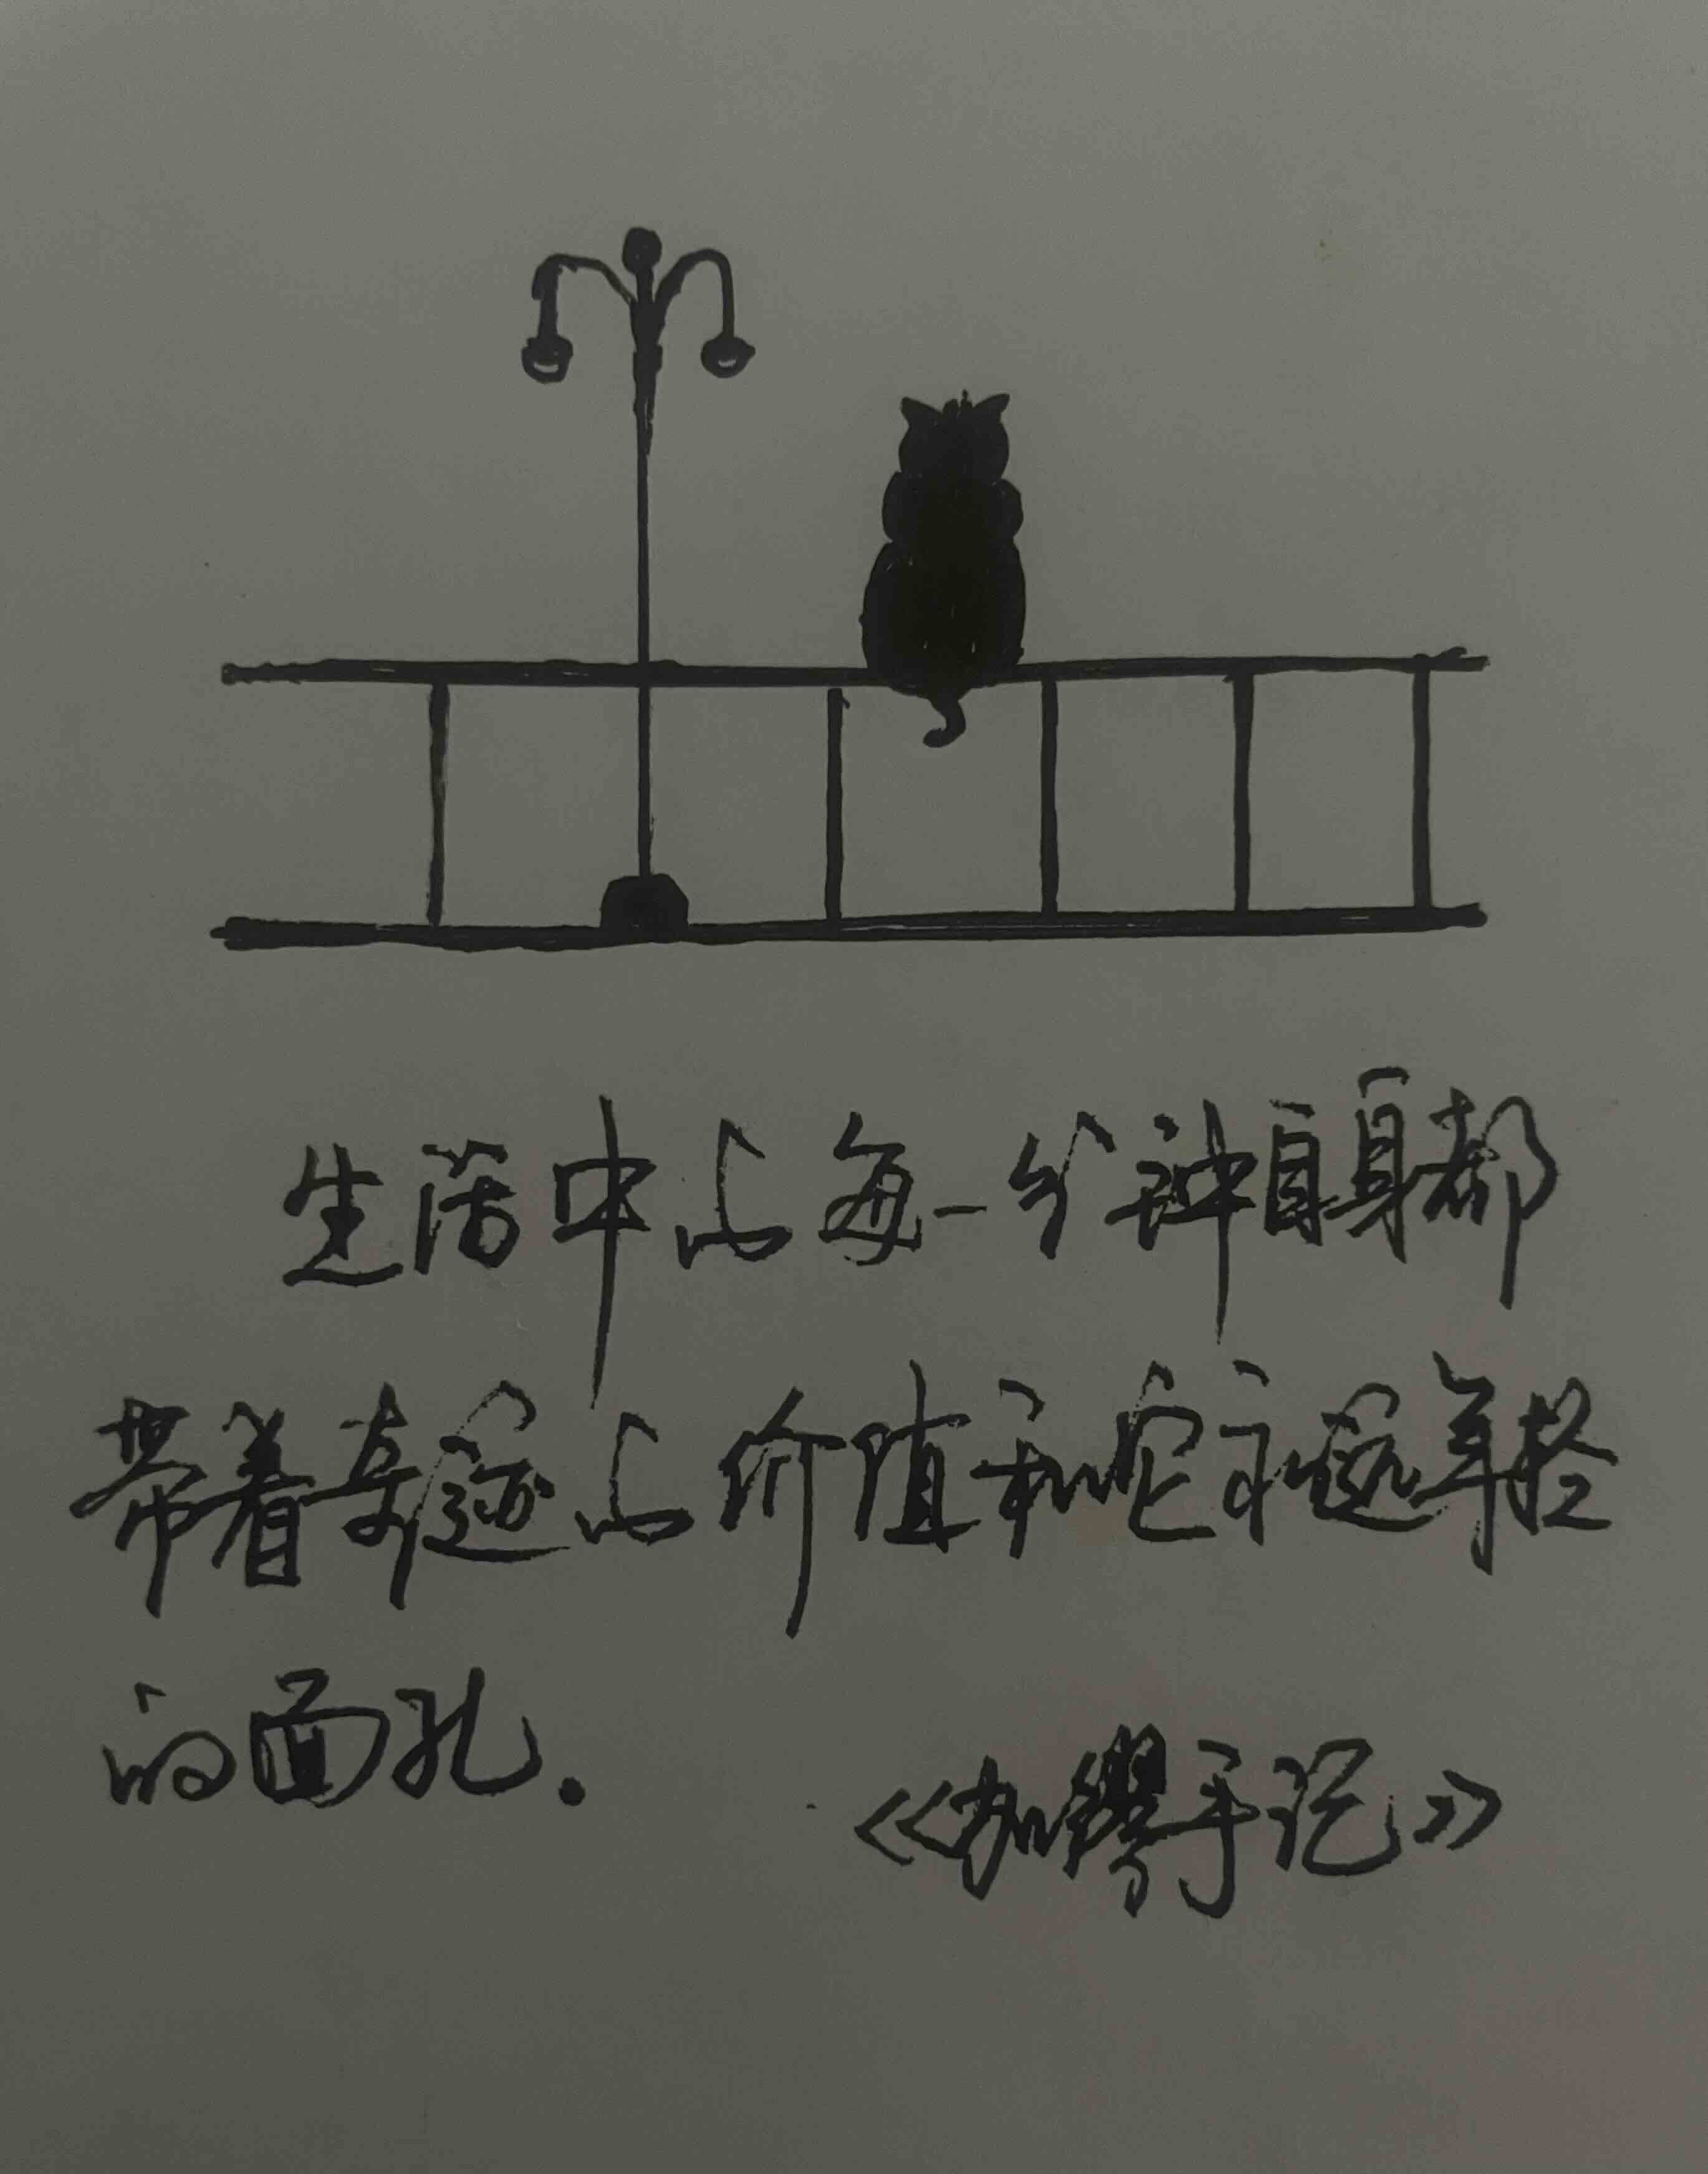 生活中的每一分钟自身都
带着奇迹的价值和它永远年轻
的面孔.
《加缪手记》